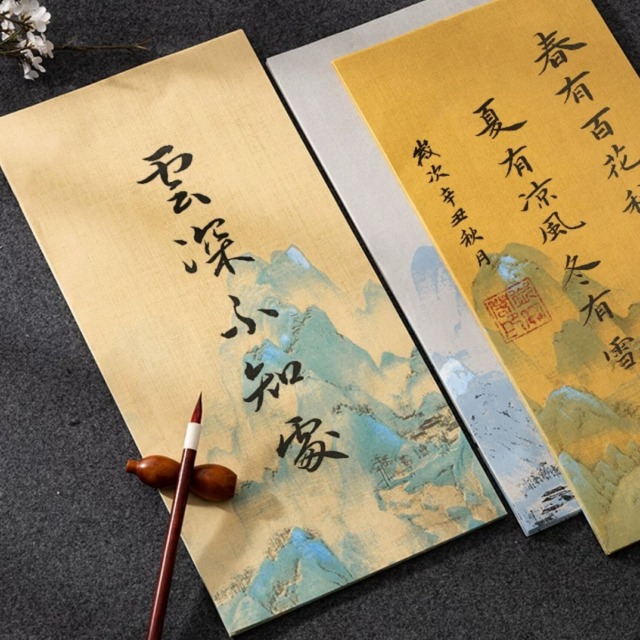 雲深不知處
春有百花
夏有凉風冬有雪
歲次辛丑秋月